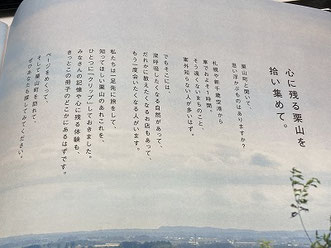 心に残る栗山を
拾い集めて。
栗山町と聞いて、
思い浮かぶものはありますか?
札幌や新千歳空港から
車でおよそ1時間。
そう遠くないまちのこと、
案外知らない人が多いはず。
でもそこには、
深呼吸したくなる自然があって、
だれかに教えたくなるお店もあって、
もう一度会いたくなる人がいます。
私たちは一足先に旅をして、
知ってほしい栗山のあれこれを、
ひとつに「クリップ」しておきました。
みなさんの記憶や心に残る体験も、
きっとこの冊子のどこかにあるはずです。
ページをめくって、
そして栗山町を訪れて、
ぜひあなたも探してみてください。